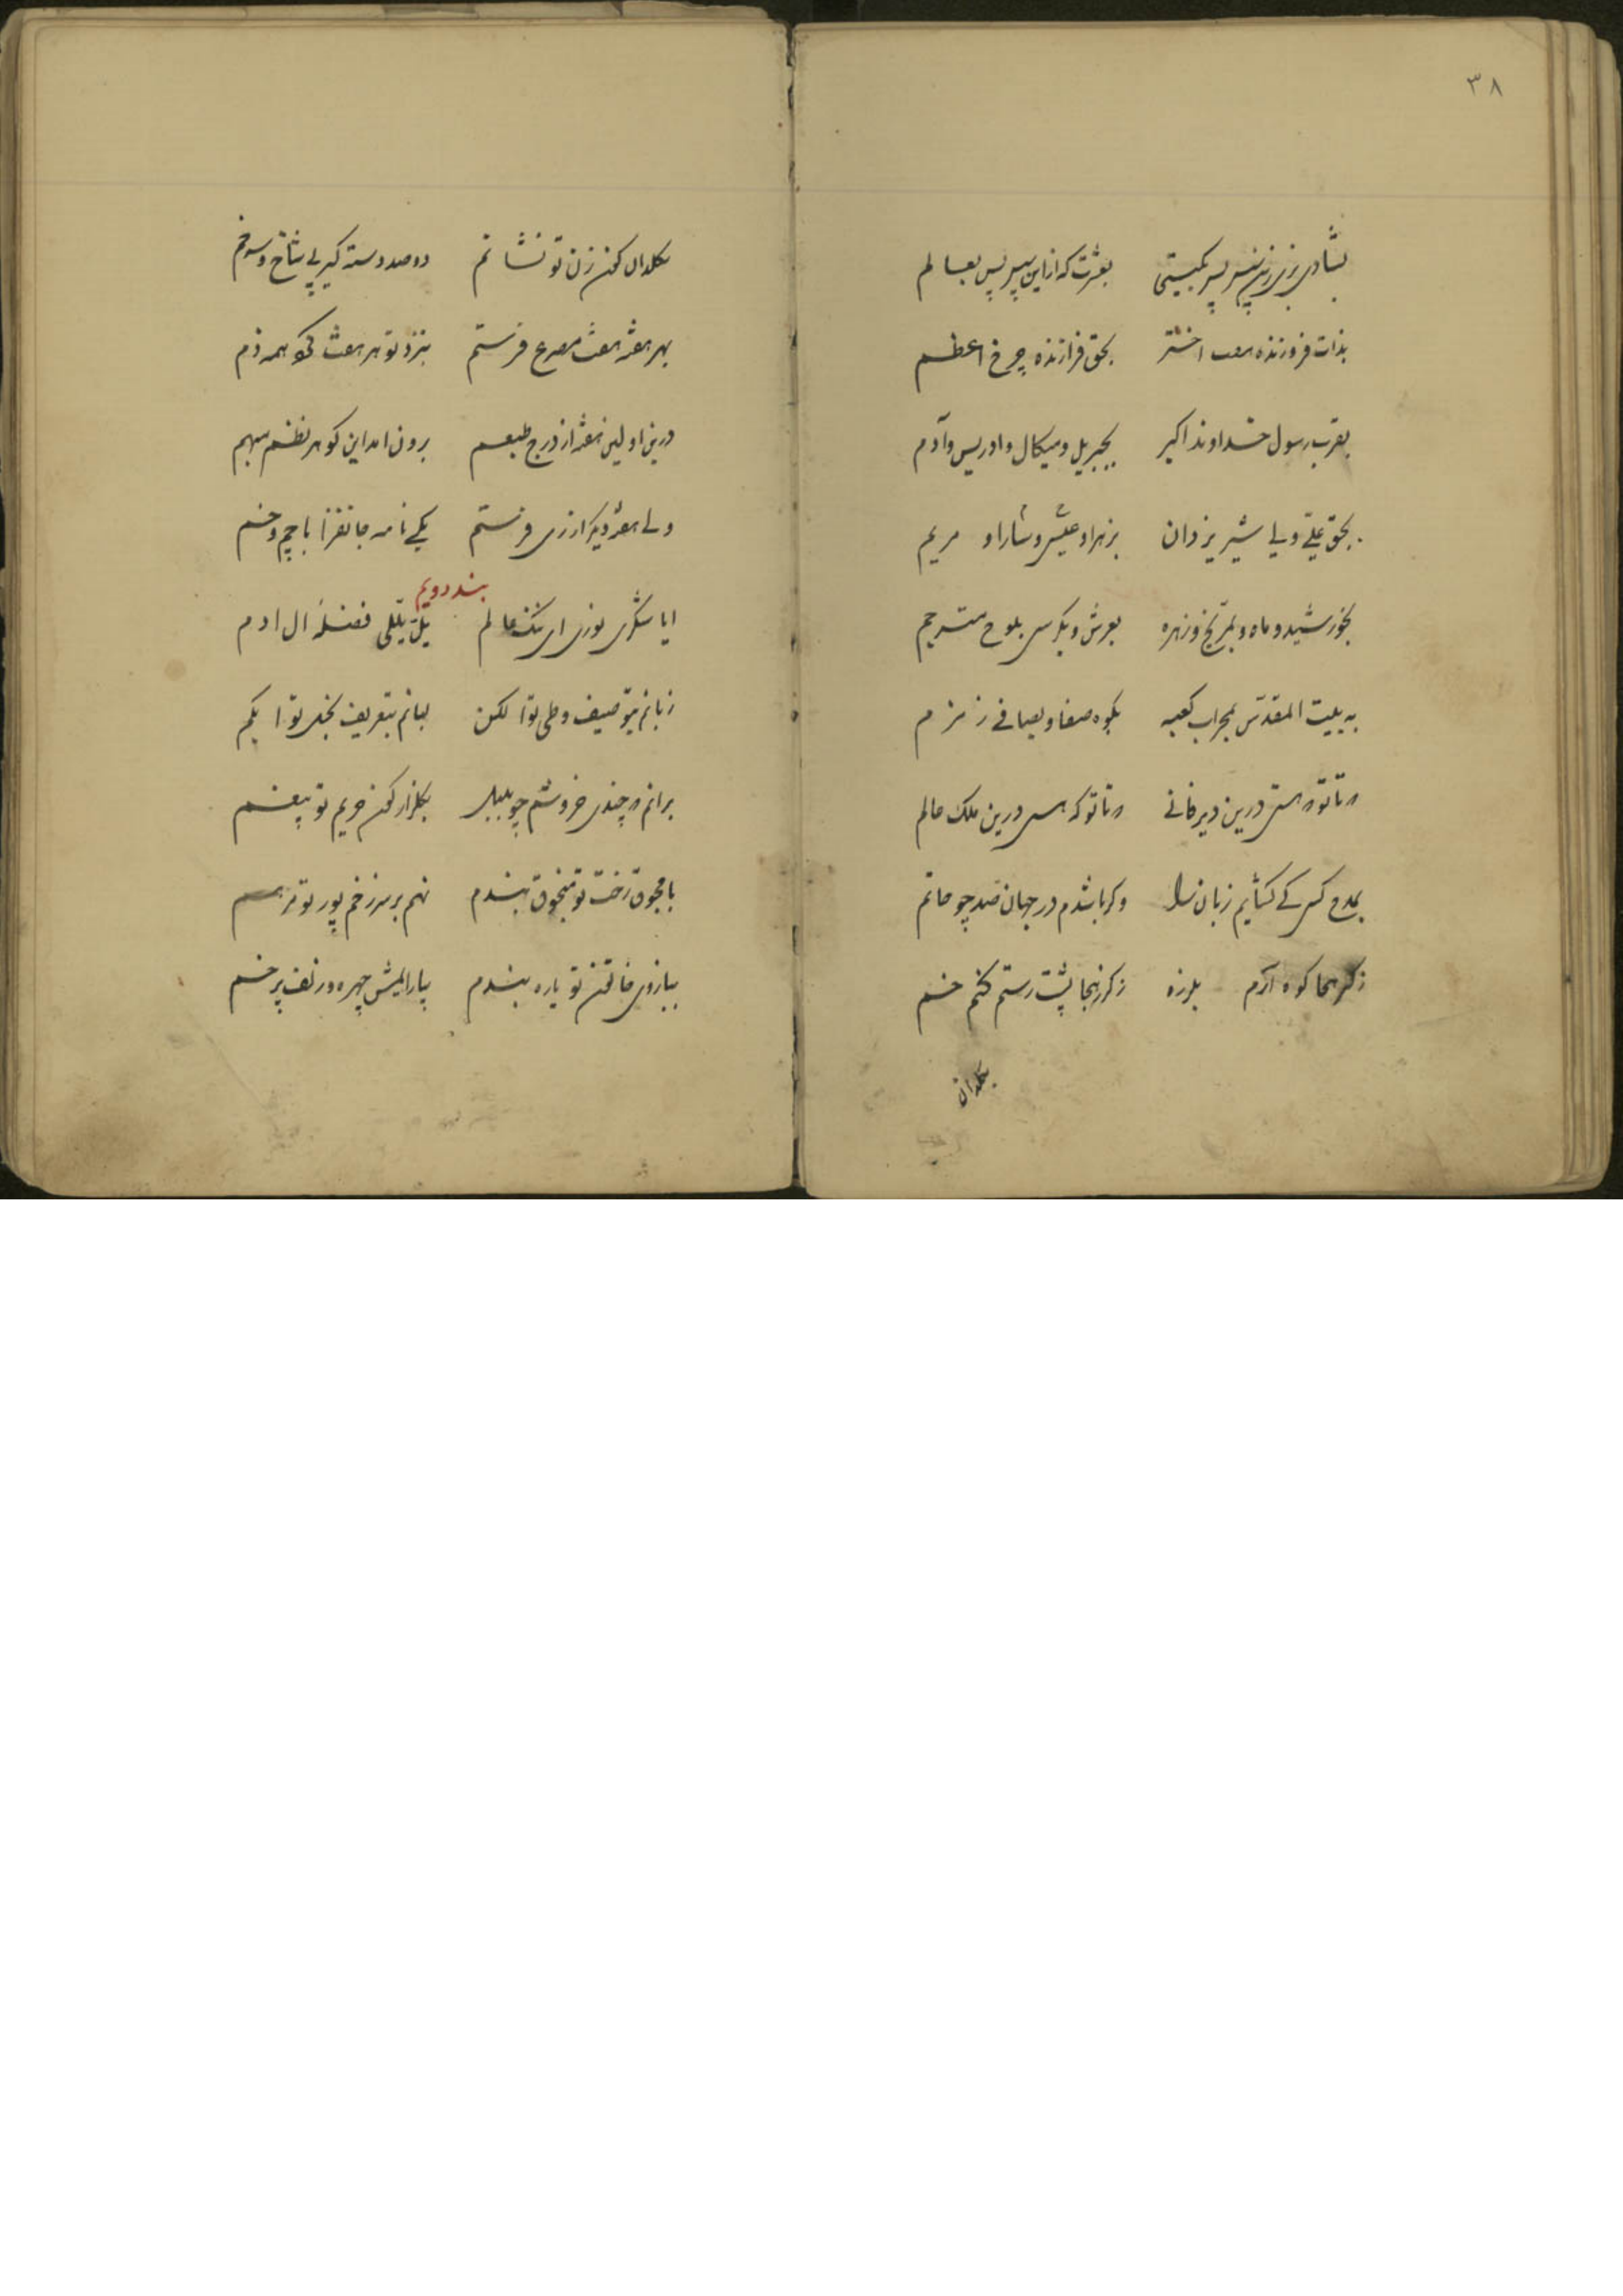 ٣٨
بشادی بزی زین سپس پس بگیتی بعشرت که ازاین سپس پس بعالم
بذات فروزنده هفت اختر بحق فرازنده چرخ اعظم
بقرب رسول خداوند اکبر بجبریل ومیکال وادریس وآدم
بحق علی ولی شیر یزدان بزهرا و عیسی وسارا و مریم
بخورشید وماه وبمریخ وزهره بعرش وبکرسی بلوح مترجم
به بیت المقدس بمحراب کعبه بکوه صفا وبصافی زمزم
نه تا تو نه هستی درین دیر فانی نه تا تو که هستی درین ملک عالم
بمدح کسی کی کشایم زبان را وکر باشدم در جهان صد چو حاتم
زکر هجا کوه آرم بلرزه زکرز هجا پشت رستم کنم خم
بکلدان
بکلدان کون زن تو نشانم دوصد دسته کیر بی شاخ و
بهر هفته هفت مصرع فرستم بنزد تو هر هفت کوهمه ذم
درین اولین هفته از درج طبعم برون امد این کوهر نظم
ولی هفته دیکر ار زری فرستم یکی نامه جانفزا با چم وخم
بند دویم
ایا شکری نوزی ای ننک عالم فضله ال ادم
زبانم بتوصیف وطی تو الکن بیانم بتعریف تو ابکم
برانم نه چندی خروشم چو بلبل بکلزار کون حریم تو
بامجوق رخت تو منجوق بندم نهم بر سر زخم پور تو مرهم
ببازوی خاتون تو یاره بندم بیارایمش چهره و زلف پر خم